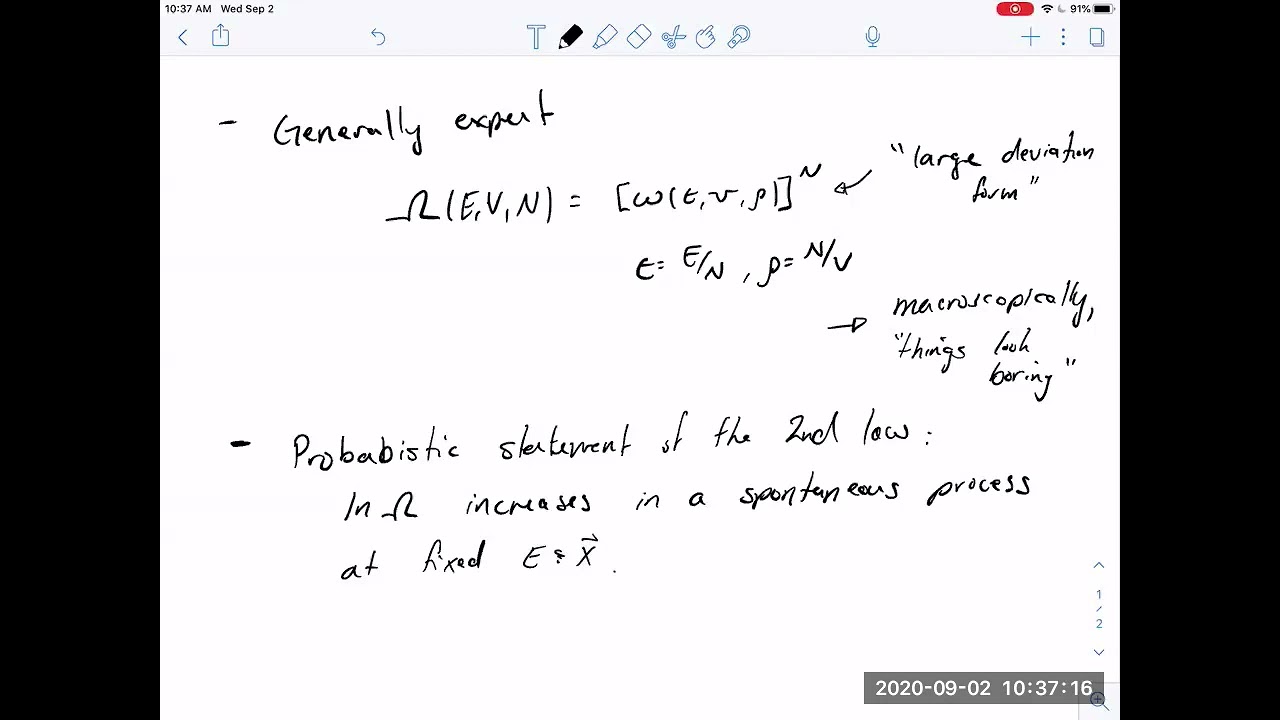 10:37 AM Wed Sep 2
91%
T
- Generally expert
Ω(E,V,N) = [ω(ε,v,ρ)]^N
"large deviation
form"
ε = E/N , ρ = N/V
→ macroscopically,
"things look
boring"
- Probabistic statement of the 2nd law :
ln Ω increases in a spontaneous process
at fixed E & X⃗ .
1
/
2
2020-09-02 10:37:16